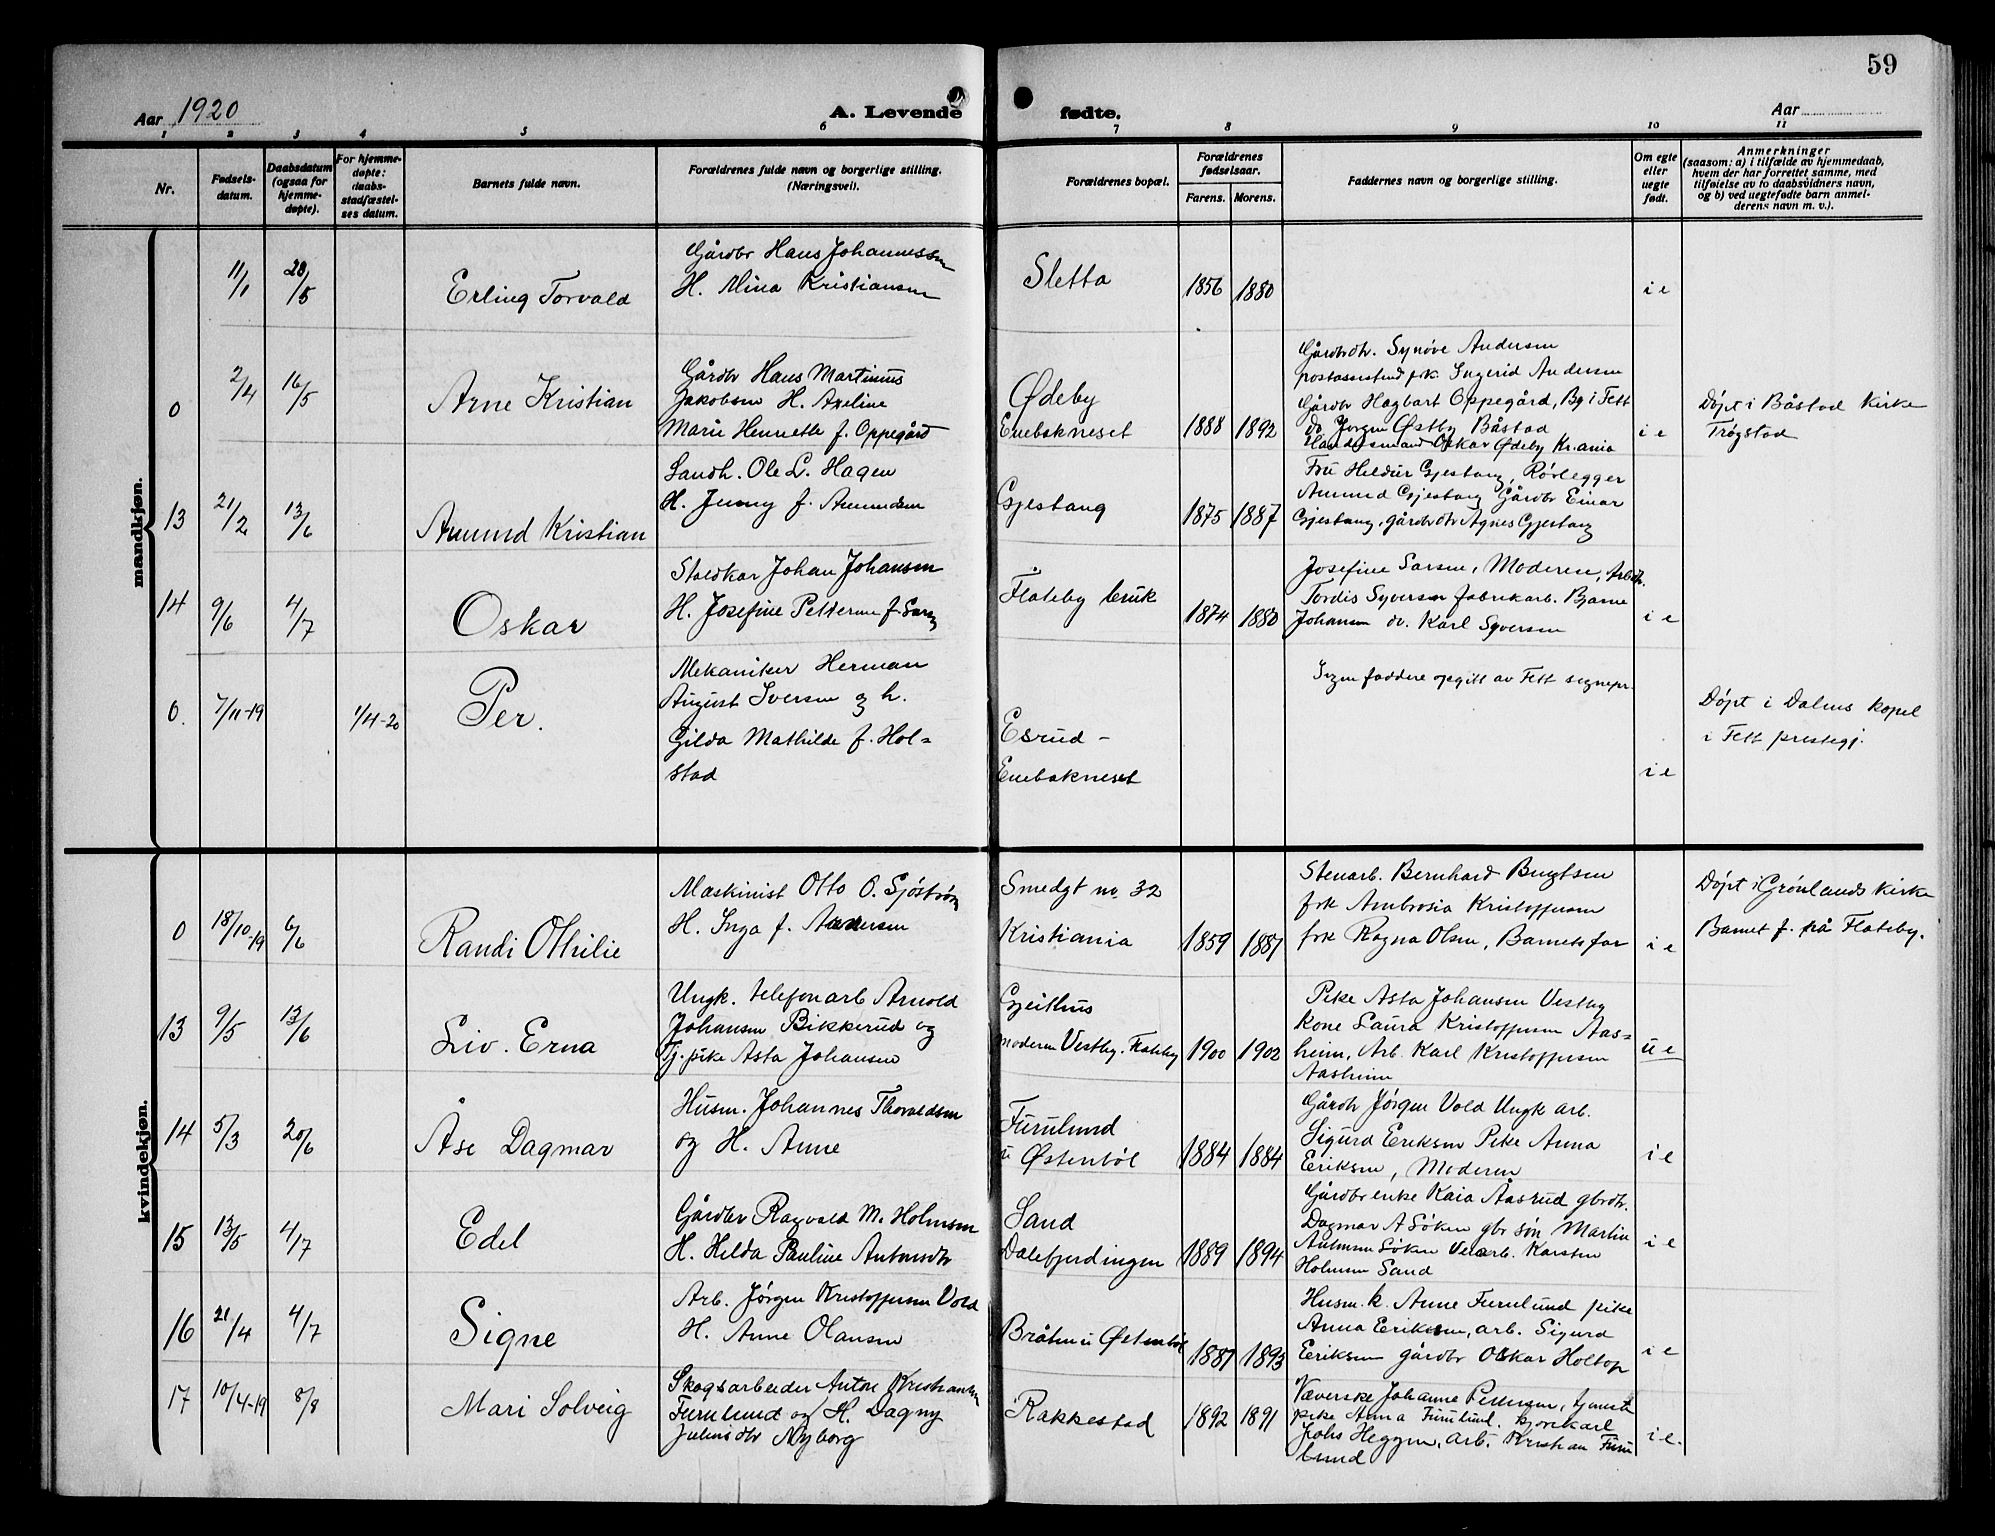 59
Aar 1920
A. Levende fødte.
Aar
1 2 3 4 5 6 7 8 9 10 11
Nr.
Fødsels-
datum.
Daabsdatum
(ogsaa for
hjemme-
døpte).
For hjemme-
døpte:
daabs-
stadfæstel-
ses datum.
Barnets fulde navn.
Forældrenes fulde navn og borgerlige stilling.
(Næringsvei).
Forældrenes bopæl.
Forældrenes
fødselsaar.
Farens. Morens.
Faddernes navn og borgerlige stilling.
Om egte
eller
uegte
født.
Anmerkninger
(saasom: a) i tilfælde av hjemmedaab,
hvem der har forrettet samme, med
tilføielse av to daabsvidners navn,
og b) ved uegtefødte barn anmel-
derens navn m. v.).
mandkjøn.
11/1 28/5
Erling Torvald
Gårdbr Hans Johannessen
H. Mina Kristiansen
Sletta
1856 1880
i e
0 2/4 16/5
Arne Kristian
Gårdbr Hans Martinius
Jakobsen H. Axeline
Marie Henriette f. Oppegård
Ødeby
Enebakneset
1888 1892
Gårdbrdtr. Synøve Andersen
postassistend frk. Ingerid Andersen
Gårdbr Hagbart Oppegård, Bg i Fett
do Jørgen Østby Båstad
Handelsmand Oskar Ødeby Kr.ania
i e
Døpt i Båstad kirke
Trøgstad
13 21/2 13/6
Amund Kristian
Landh. Ole L. Hagen
H. Jenny f. Amundsen
Gjestang
1875 1887
Fru Hildur Gjestang, Rørlegger
Amund Gjestang Gårdbr Einar
Gjestang, gårdbrdtr Agnes Gjestang
14 9/6 4/7
Oskar
Staldkar Johan Johansen
H. Josefine Petterine f.
Flateby bruk
1874 1880
Josefine Larsen, Moderen, Arbdtr.
Tordis Syversen fabrikarb. Bjarne
Johansen do. Karl Syversen
i e
0. 7/11-19 1/4-20
Per.
Mekaniker Herman
August Iversen og h.
Gilda Mathilde f. Hol=
stad
Esrud -
Enebakneset
Ingen faddere opgitt av Fett sognepr.
i e
Døpt i Dalens kapel
i Fett prestegj.
kvindekjøn.
0 18/10-19 6/6
Randi Othilie
Maskinist Otto O. Sjöström
H. Inga f. Andersen
Smedgt no. 32
Kristiania
1859 1887
Stenarb. Bernhard Bengtsen
frk Ambrosia Kristoffersen
frk Ragna Olsen, Barnets far
i e
Døpt i Grønlands kirke
Barnet f. på Flateby.
13 9/5 13/6
Liv. Erna
Ungk. telefonarb Arnold
Johansen Bikkerud og
Tj. pike Asta Johansen
Gjeithus
moderen Vestby. Flateby
1900 1902
Pike Asta Johansen Vestby
Kone Laura Kristoffersen Aas=
heim, Arb. Karl Kristoffersen
Aasheim
u e
14 5/3 20/6
Åse Dagmar
Husm. Johannes Thorvaldsen
og H. Anne
Furulund
u Østenbøl
1884 1884
Gårdbr Jørgen Vold Ungk arb.
Sigurd Eriksen Pike Anna
Eriksen, Moderen
i e
15 13/5 4/7
Edel
Gårdbr Ragvald M. Holmsen
H. Hilda Pauline Antonsdtr
Sand
Dalefjerdingen
1889 1894
Gårdbrenke Kaia Åasrud gbrdtr.
Dagmar A Søken gbr søn Martin
Antonsen Søken Veiarb. Karsten
Holmsen Sand
i e
16 21/4 4/7
Signe
Arb. Jørgen Kristoffersen Vold
H. Anne Olausen
Bråten u Østenbøl
1887 1893
Husm. k. Anne Furulund pike
Anna Eriksen, arb. Sigurd
Eriksen gårdbr Oskar Holtop
i e
17 10/4-19 8/8
Mari Solveig
Skogsarbeider Anton Kristiansen
Furulund og H. Dagny
Juliusdtr Nyborg
Rakkestad
1892 1891
Væverske Johanne Pedersen, tjeneste
pike Anna Furulund. kjørekarl
Johs Heggen, arb. Kristian Furu
lund
i e.